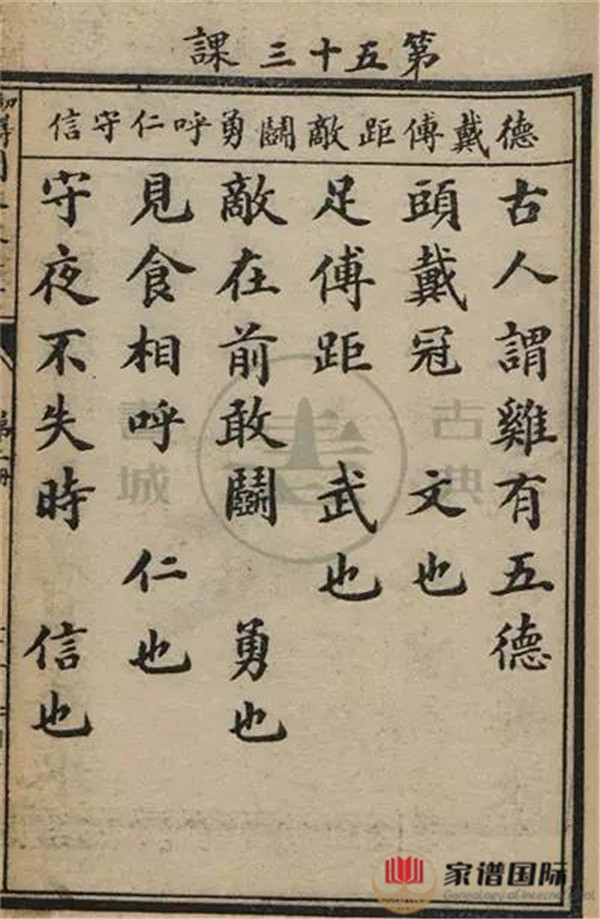 第五十三課
德戴傅距敵鬭勇呼仁守信
古人謂雞有五德
頭戴冠 文也
足傅距 武也
敵在前敢鬭 勇也
見食相呼 仁也
守夜不失時 信也
古典
書城
家谱国际
Genealogy of international